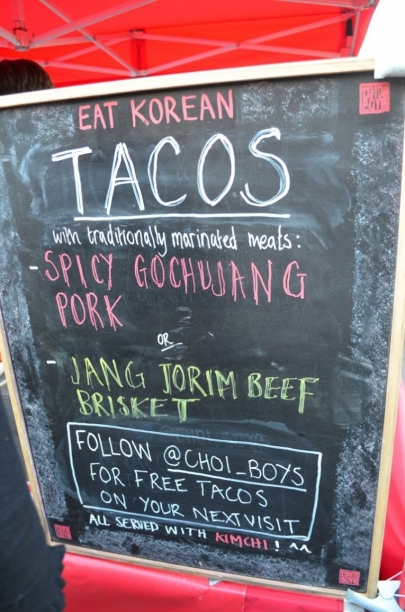 EAT KOREAN
TACOS
with traditionally marinated meats:
- SPICY GOCHUJANG
PORK
OR
- JANG JORIM BEEF
BRISKET
FOLLOW @CHOI_BOYS
FOR FREE TACOS
ON YOUR NEXT VISIT
ALL SERVED WITH KIMCHI! ^^